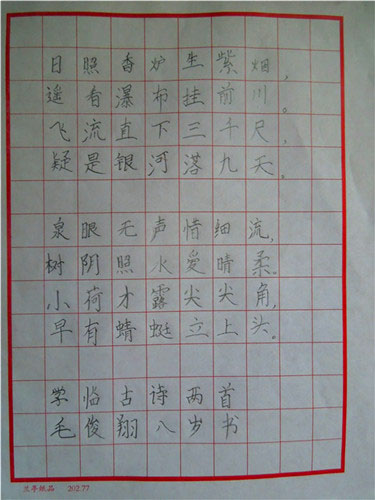 日照香炉生紫烟，
遥看瀑布挂前川。
飞流直下三千尺，
疑是银河落九天。
泉眼无声惜细流，
树阴照水爱晴柔.
小荷才露尖尖角，
早有蜻蜓立上头。
学临古诗两首
毛俊翔八岁书
兰亭纸品 202.77